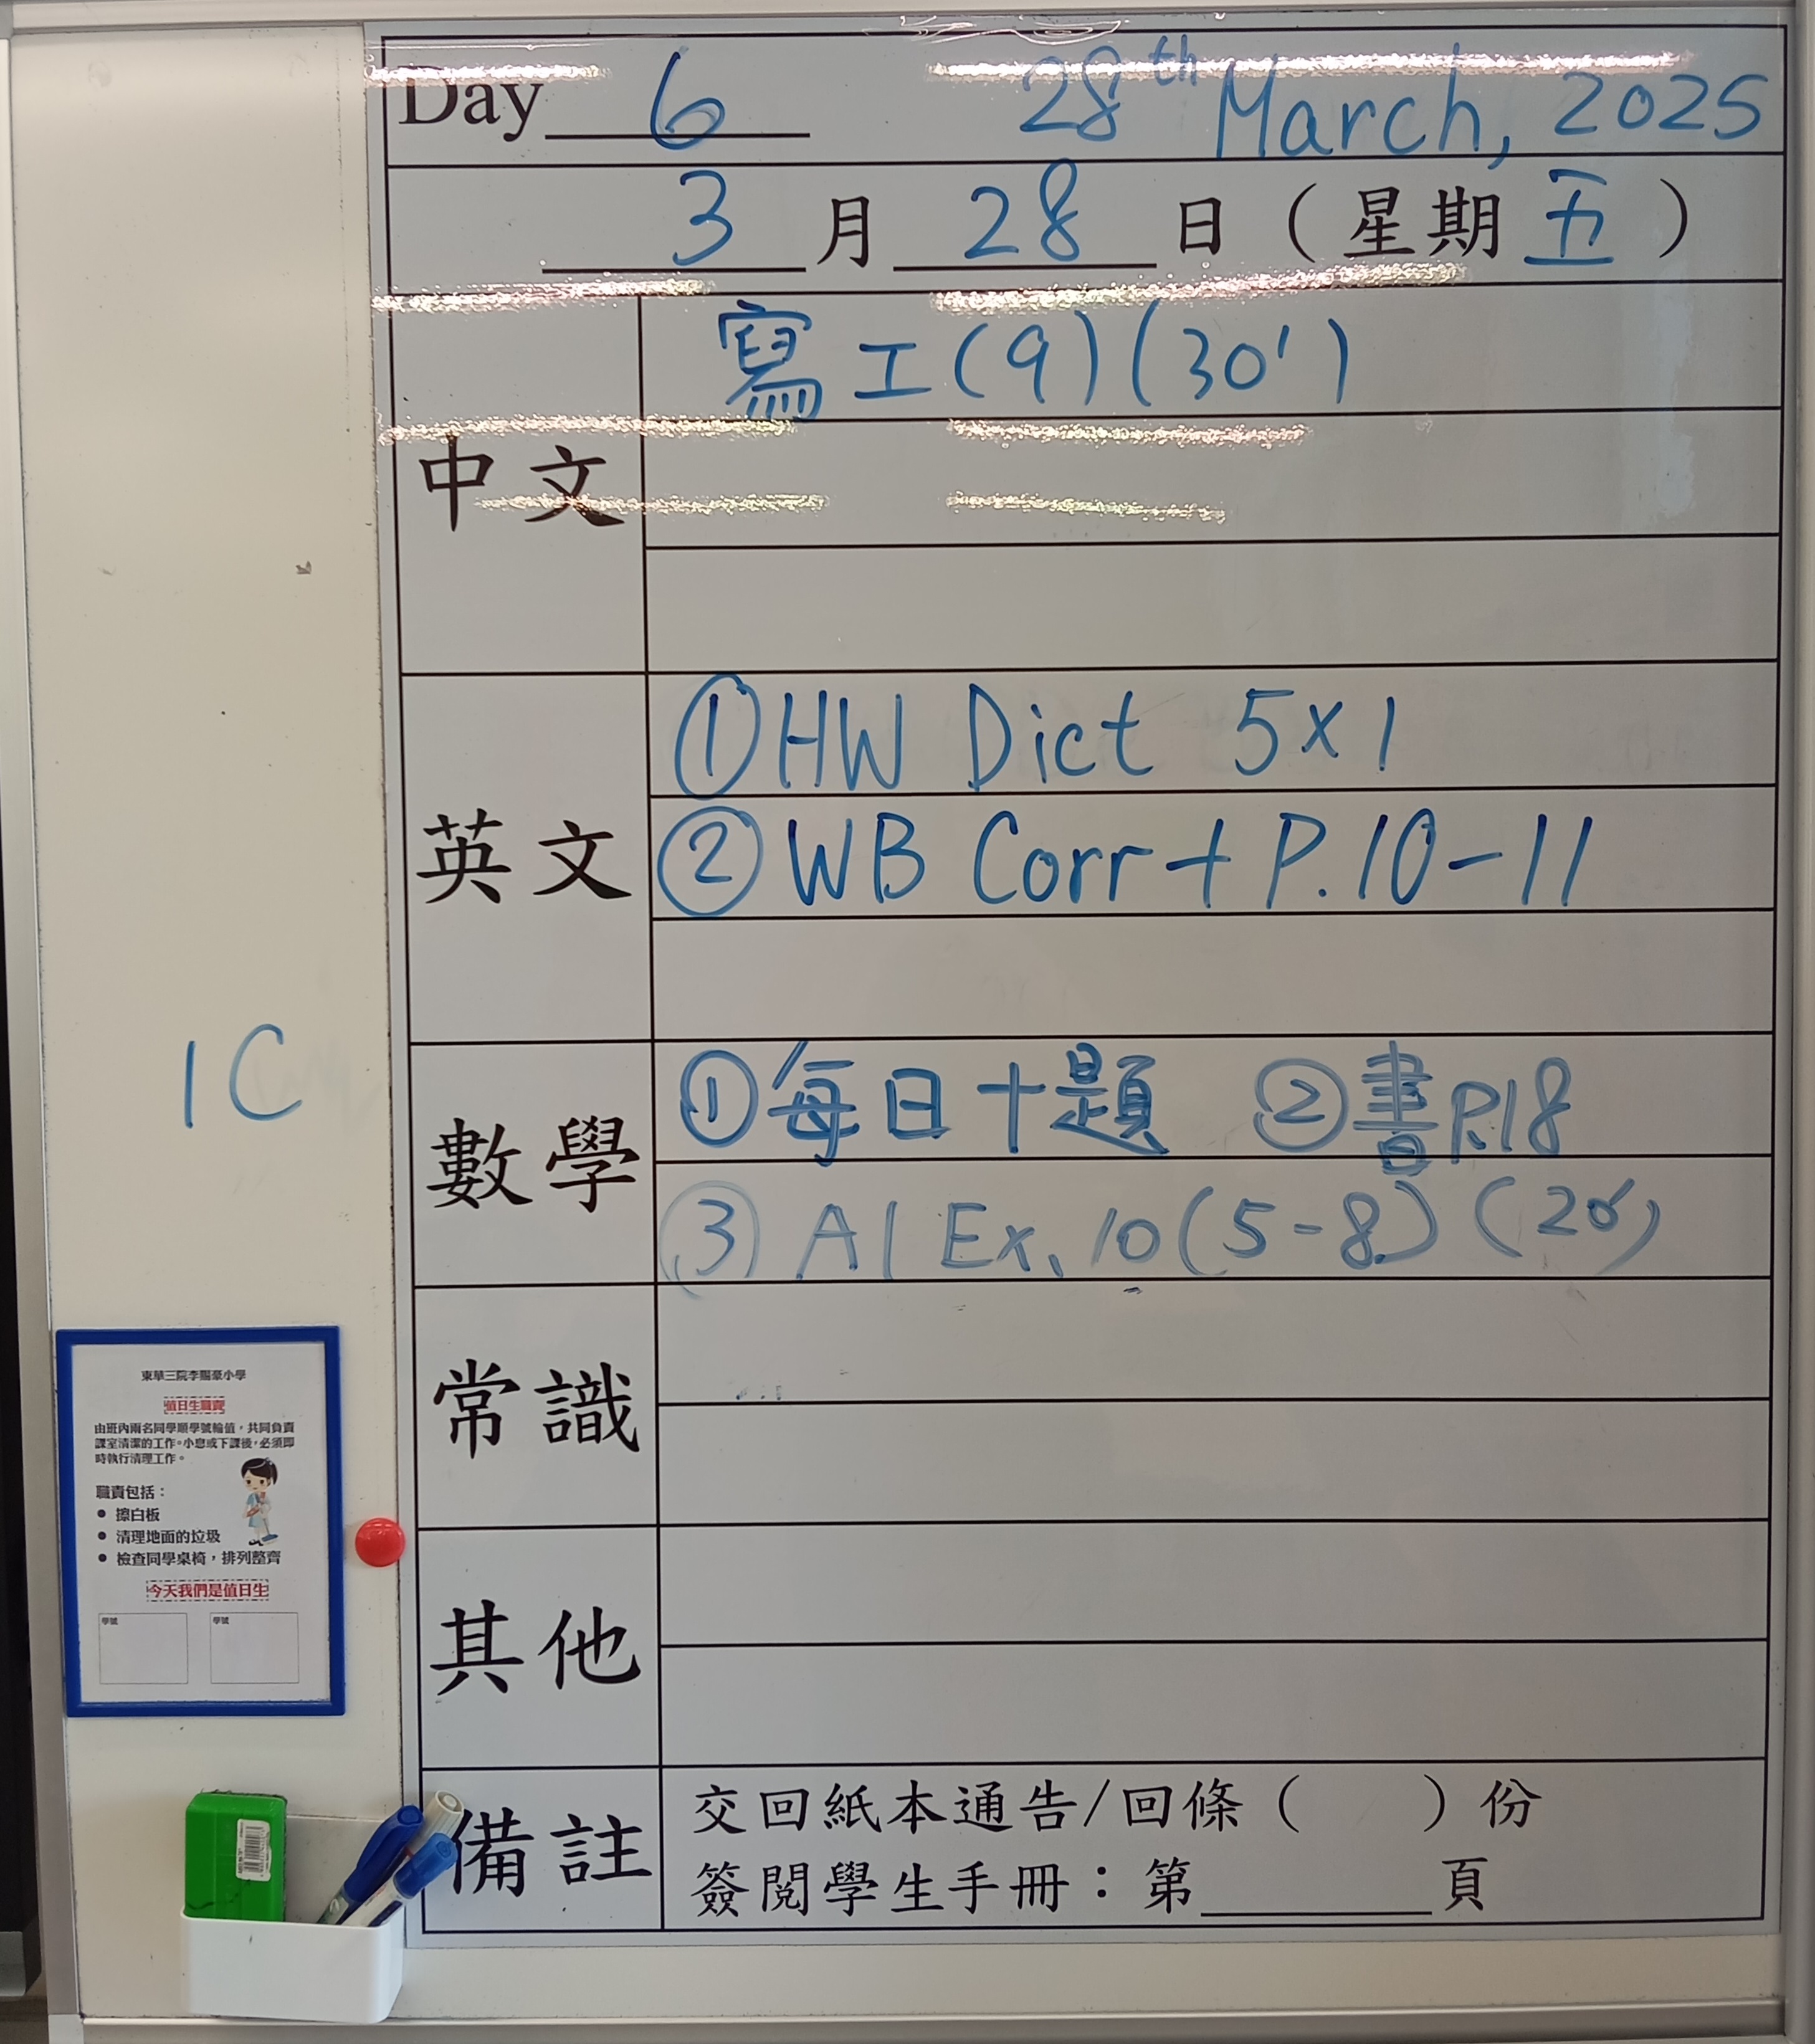 Day 6 28th March, 2025
3月28日（星期五）
中文
寫工(9)(30')
英文
①HW Dict 5×1
②WB Corr + P.10-11
數學
①每日十題 ②書P.18
③A1 Ex. 10(5-8)(20')
常識
其他
備註
交回紙本通告/回條（ ）份
簽閱學生手冊：第______頁
1C
東華三院李賜豪小學
值日生職責
由班內兩名同學順學號輪值，共同負責
課室清潔的工作。小息或下課後，必須即
時執行清理工作。
職責包括：
● 擦白板
● 清理地面的垃圾
● 檢查同學桌椅，排列整齊
今天我們是值日生
學號 學號